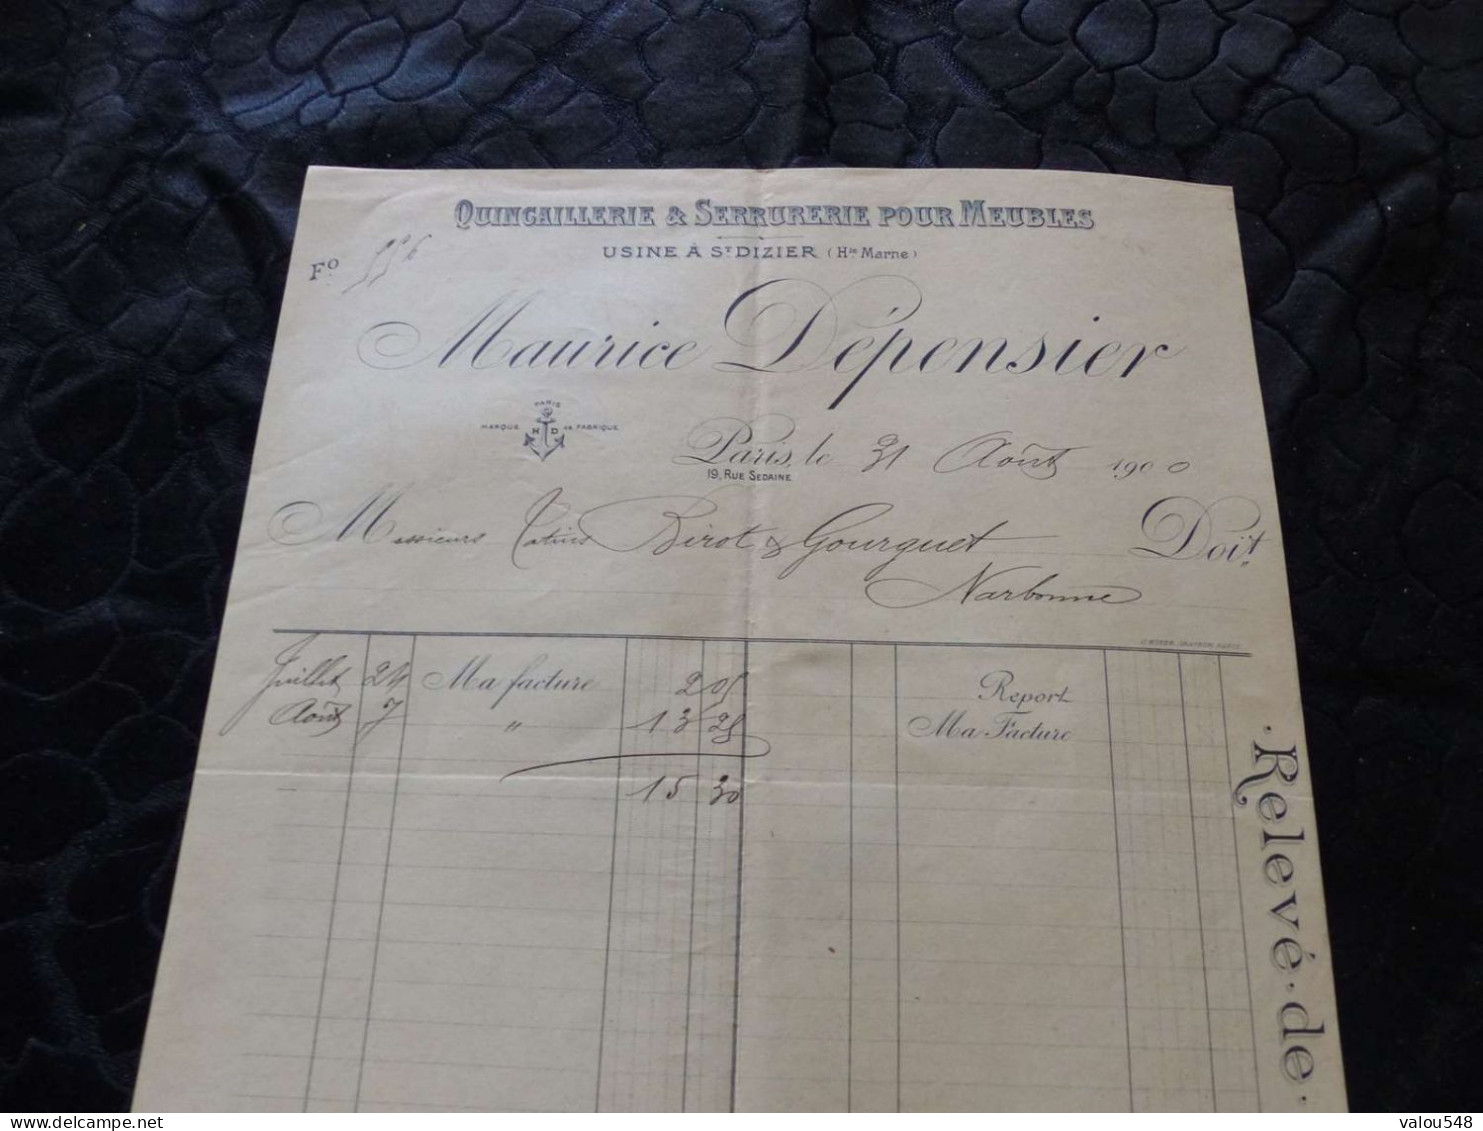 QUINCAILLERIE & SERRURERIE POUR MEUBLES
USINE À ST DIZIER (Hte Marne)
Fo 556
Maurice Dépensier
PARIS
MARQUE H D de FABRIQUE
Paris, le 31 Août 1900
19, RUE SEDAINE
Messieurs Birot & Gourguet Doit
Narbonne
Juillet 24 Ma facture 2 05
Août 7 " 13 25
15 30
Report
Ma Facture
Relevé de
valou548